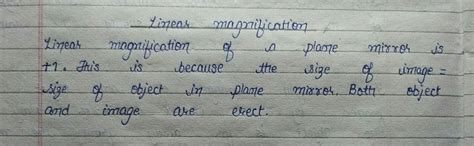 Linear magnification
Linear magnification of a plane mirror is
+1. This is because the size of image =
size of object in plane mirror. Both object
and image are erect.